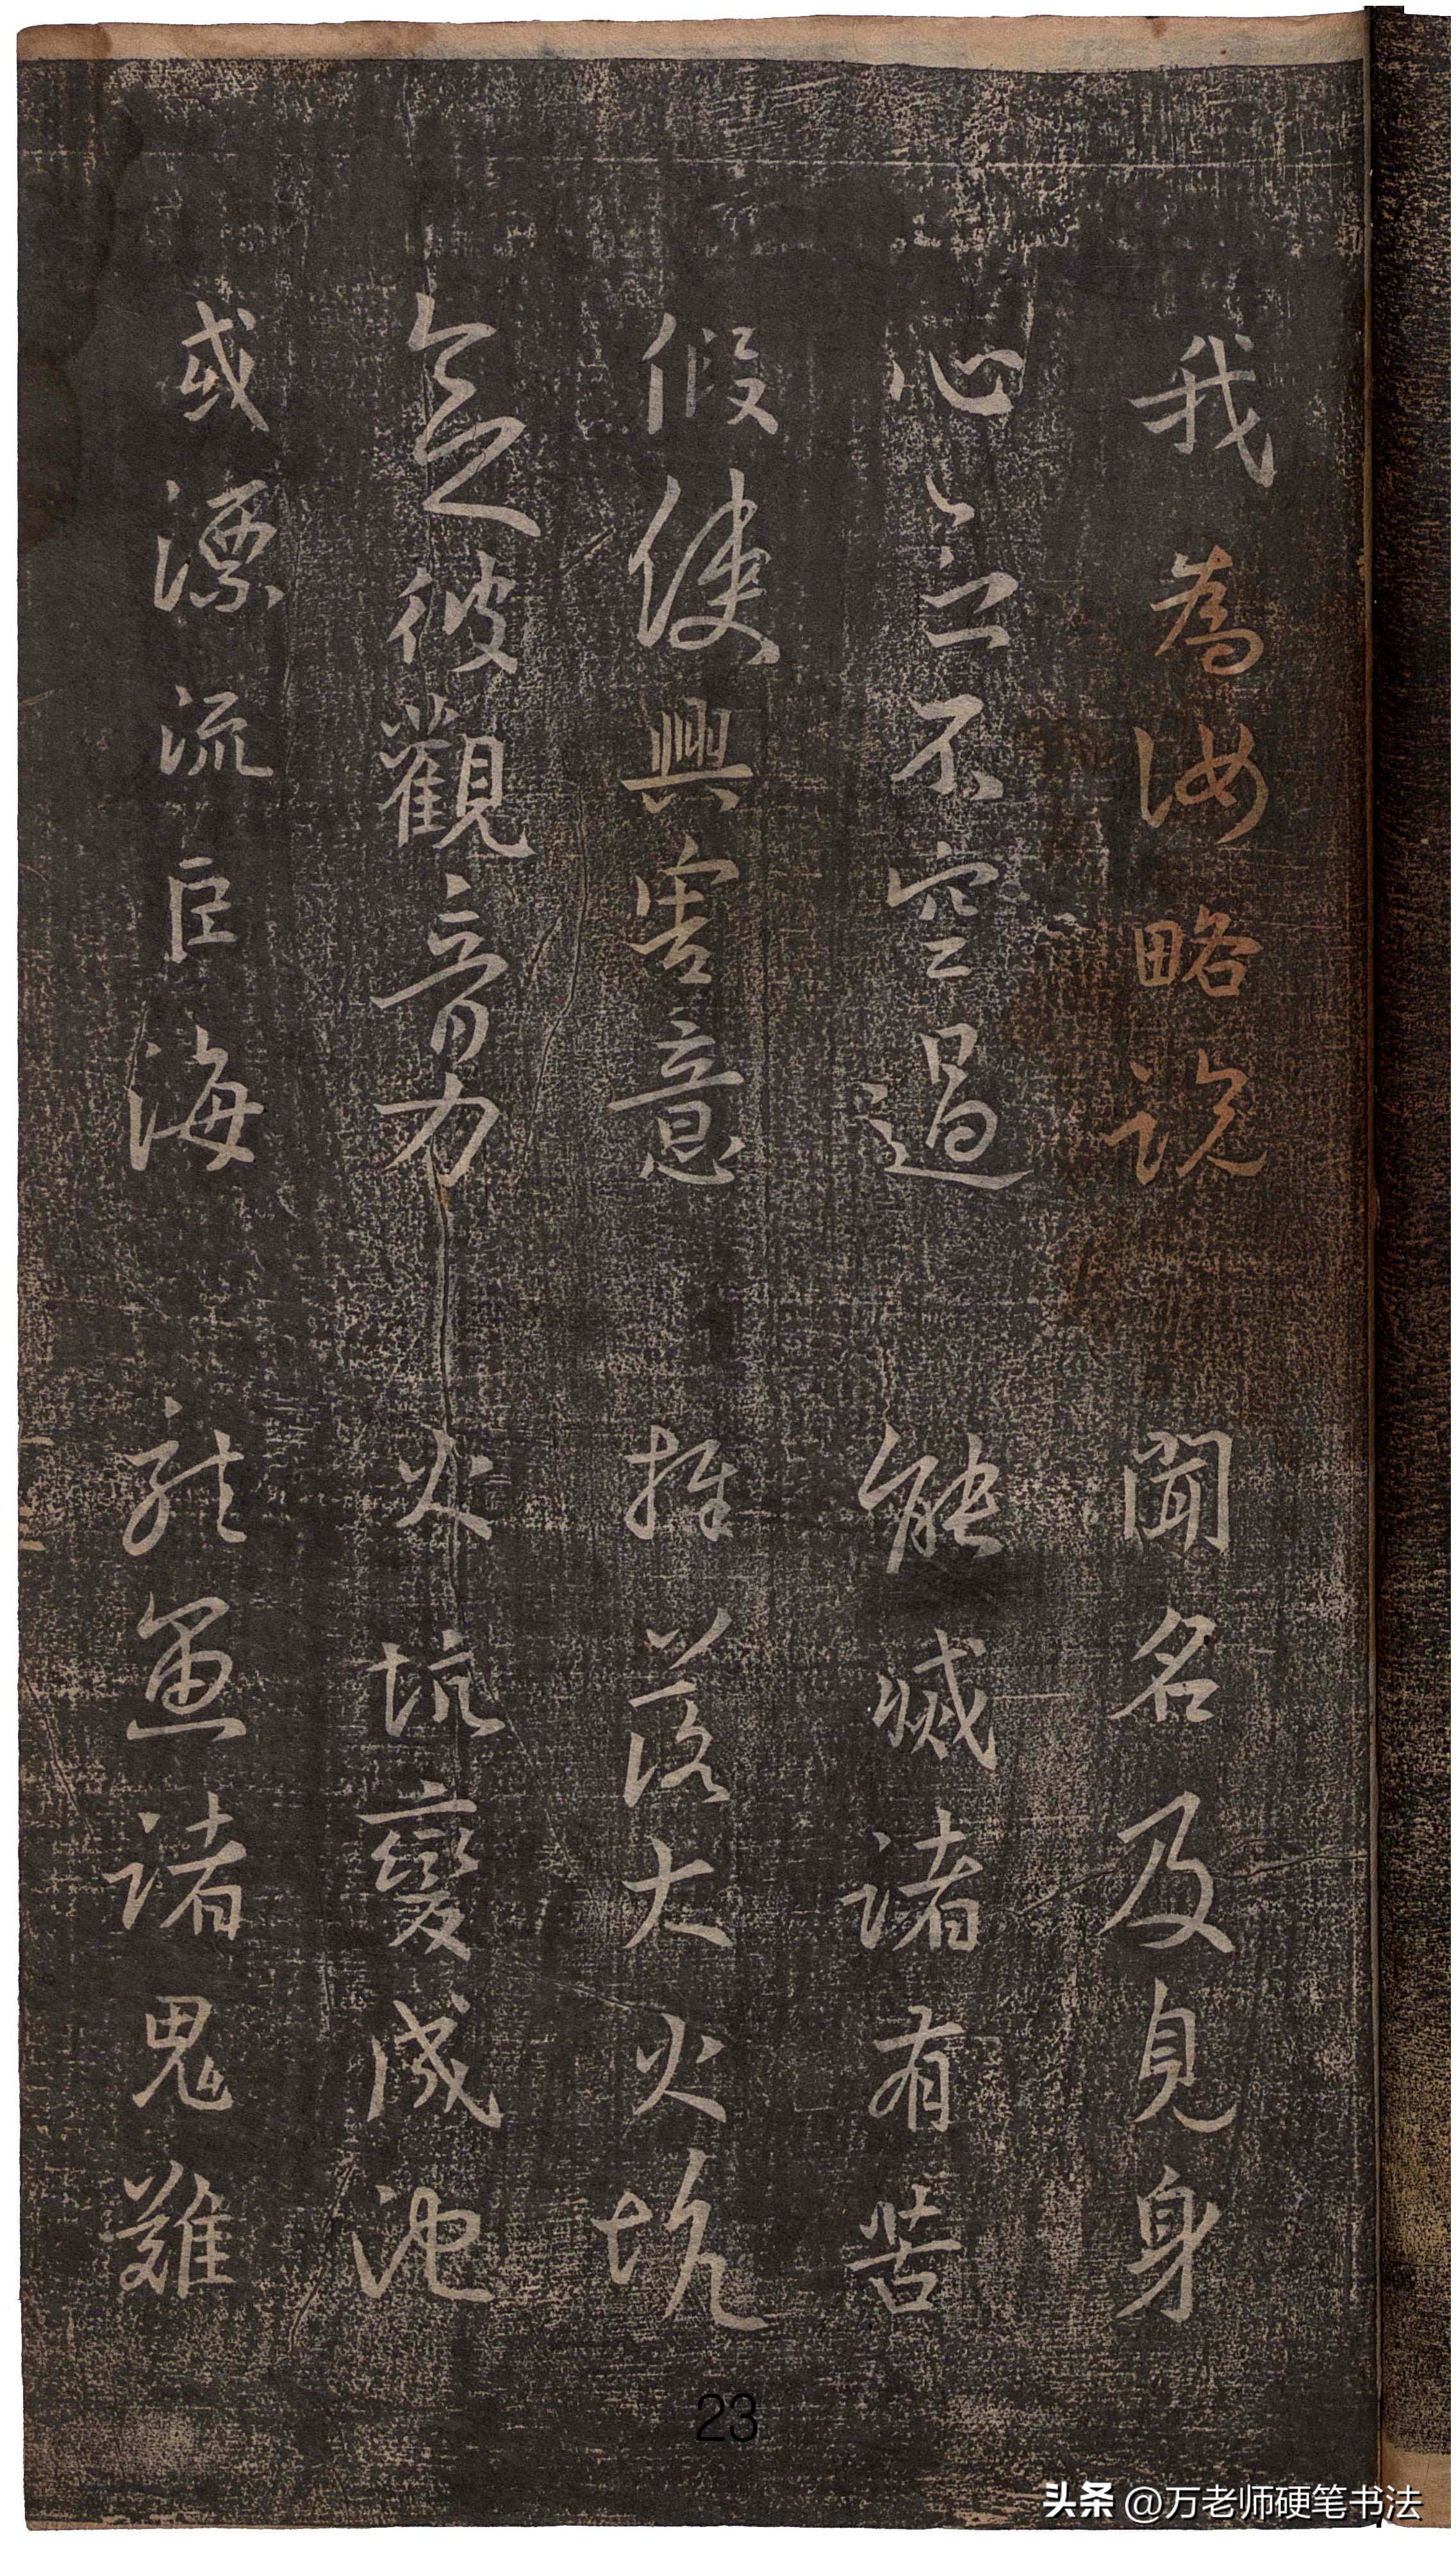 我為汝略說　聞名及見身
心念不空過　能滅諸有苦
假使興害意　推落大火坑
念彼觀音力　火坑變成池
或漂流巨海　龍魚諸鬼難
23
头条 @万老师硬笔书法